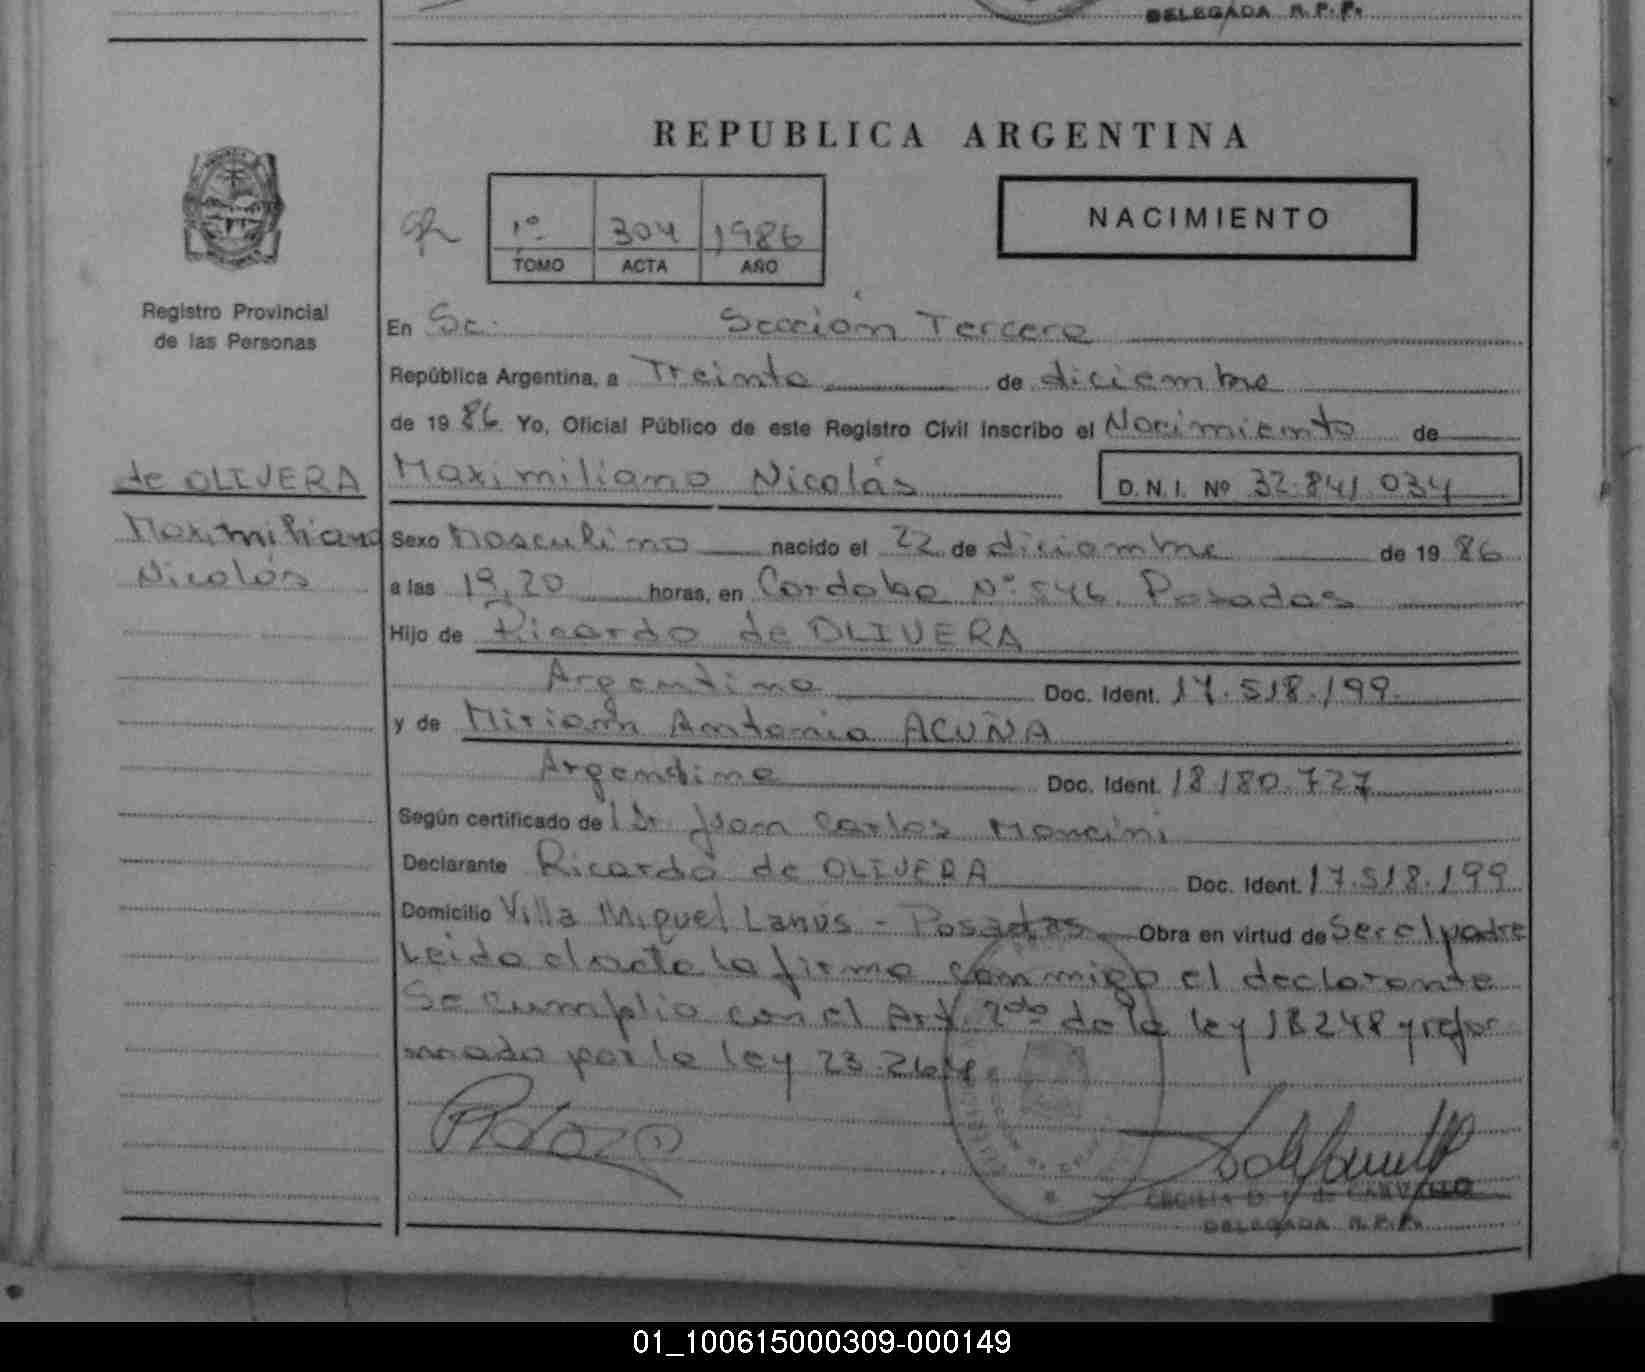 DELEGADA R.P.P.
REPUBLICA ARGENTINA
1º 304 1986
TOMO ACTA AÑO
NACIMIENTO
Registro Provincial
de las Personas
En Sc. Sección Tercera
República Argentina, a Treinta de diciembre
de 1986 Yo, Oficial Público de este Registro Civil inscribo el Nacimiento de
de OLIVERA
Maximiliano
Nicolás
Maximiliano Nicolás D.N.I. Nº 32.841.034
Sexo Masculino nacido el 22 de diciembre de 1986
a las 19,20 horas, en Cordoba Nº 546 Posadas
Hijo de Ricardo de OLIVERA
Argentino Doc. Ident. 17.518.199
y de Miriam Antonia ACUÑA
Argentina Doc. Ident. 18.180.727
Según certificado del Dr Juan Carlos Mancini
Declarante Ricardo de OLIVERA Doc. Ident. 17.518.199
Domicilio Villa Miguel Lanús - Posadas Obra en virtud de Ser el padre
Leida el acta la firma conmigo el declarante
Se cumplio con el Art. 2do de la ley 18248 y refor
mado por la ley 23.264.
CECILIA D. de CARVALLO
DELEGADA R.P.P.
01_100615000309-000149